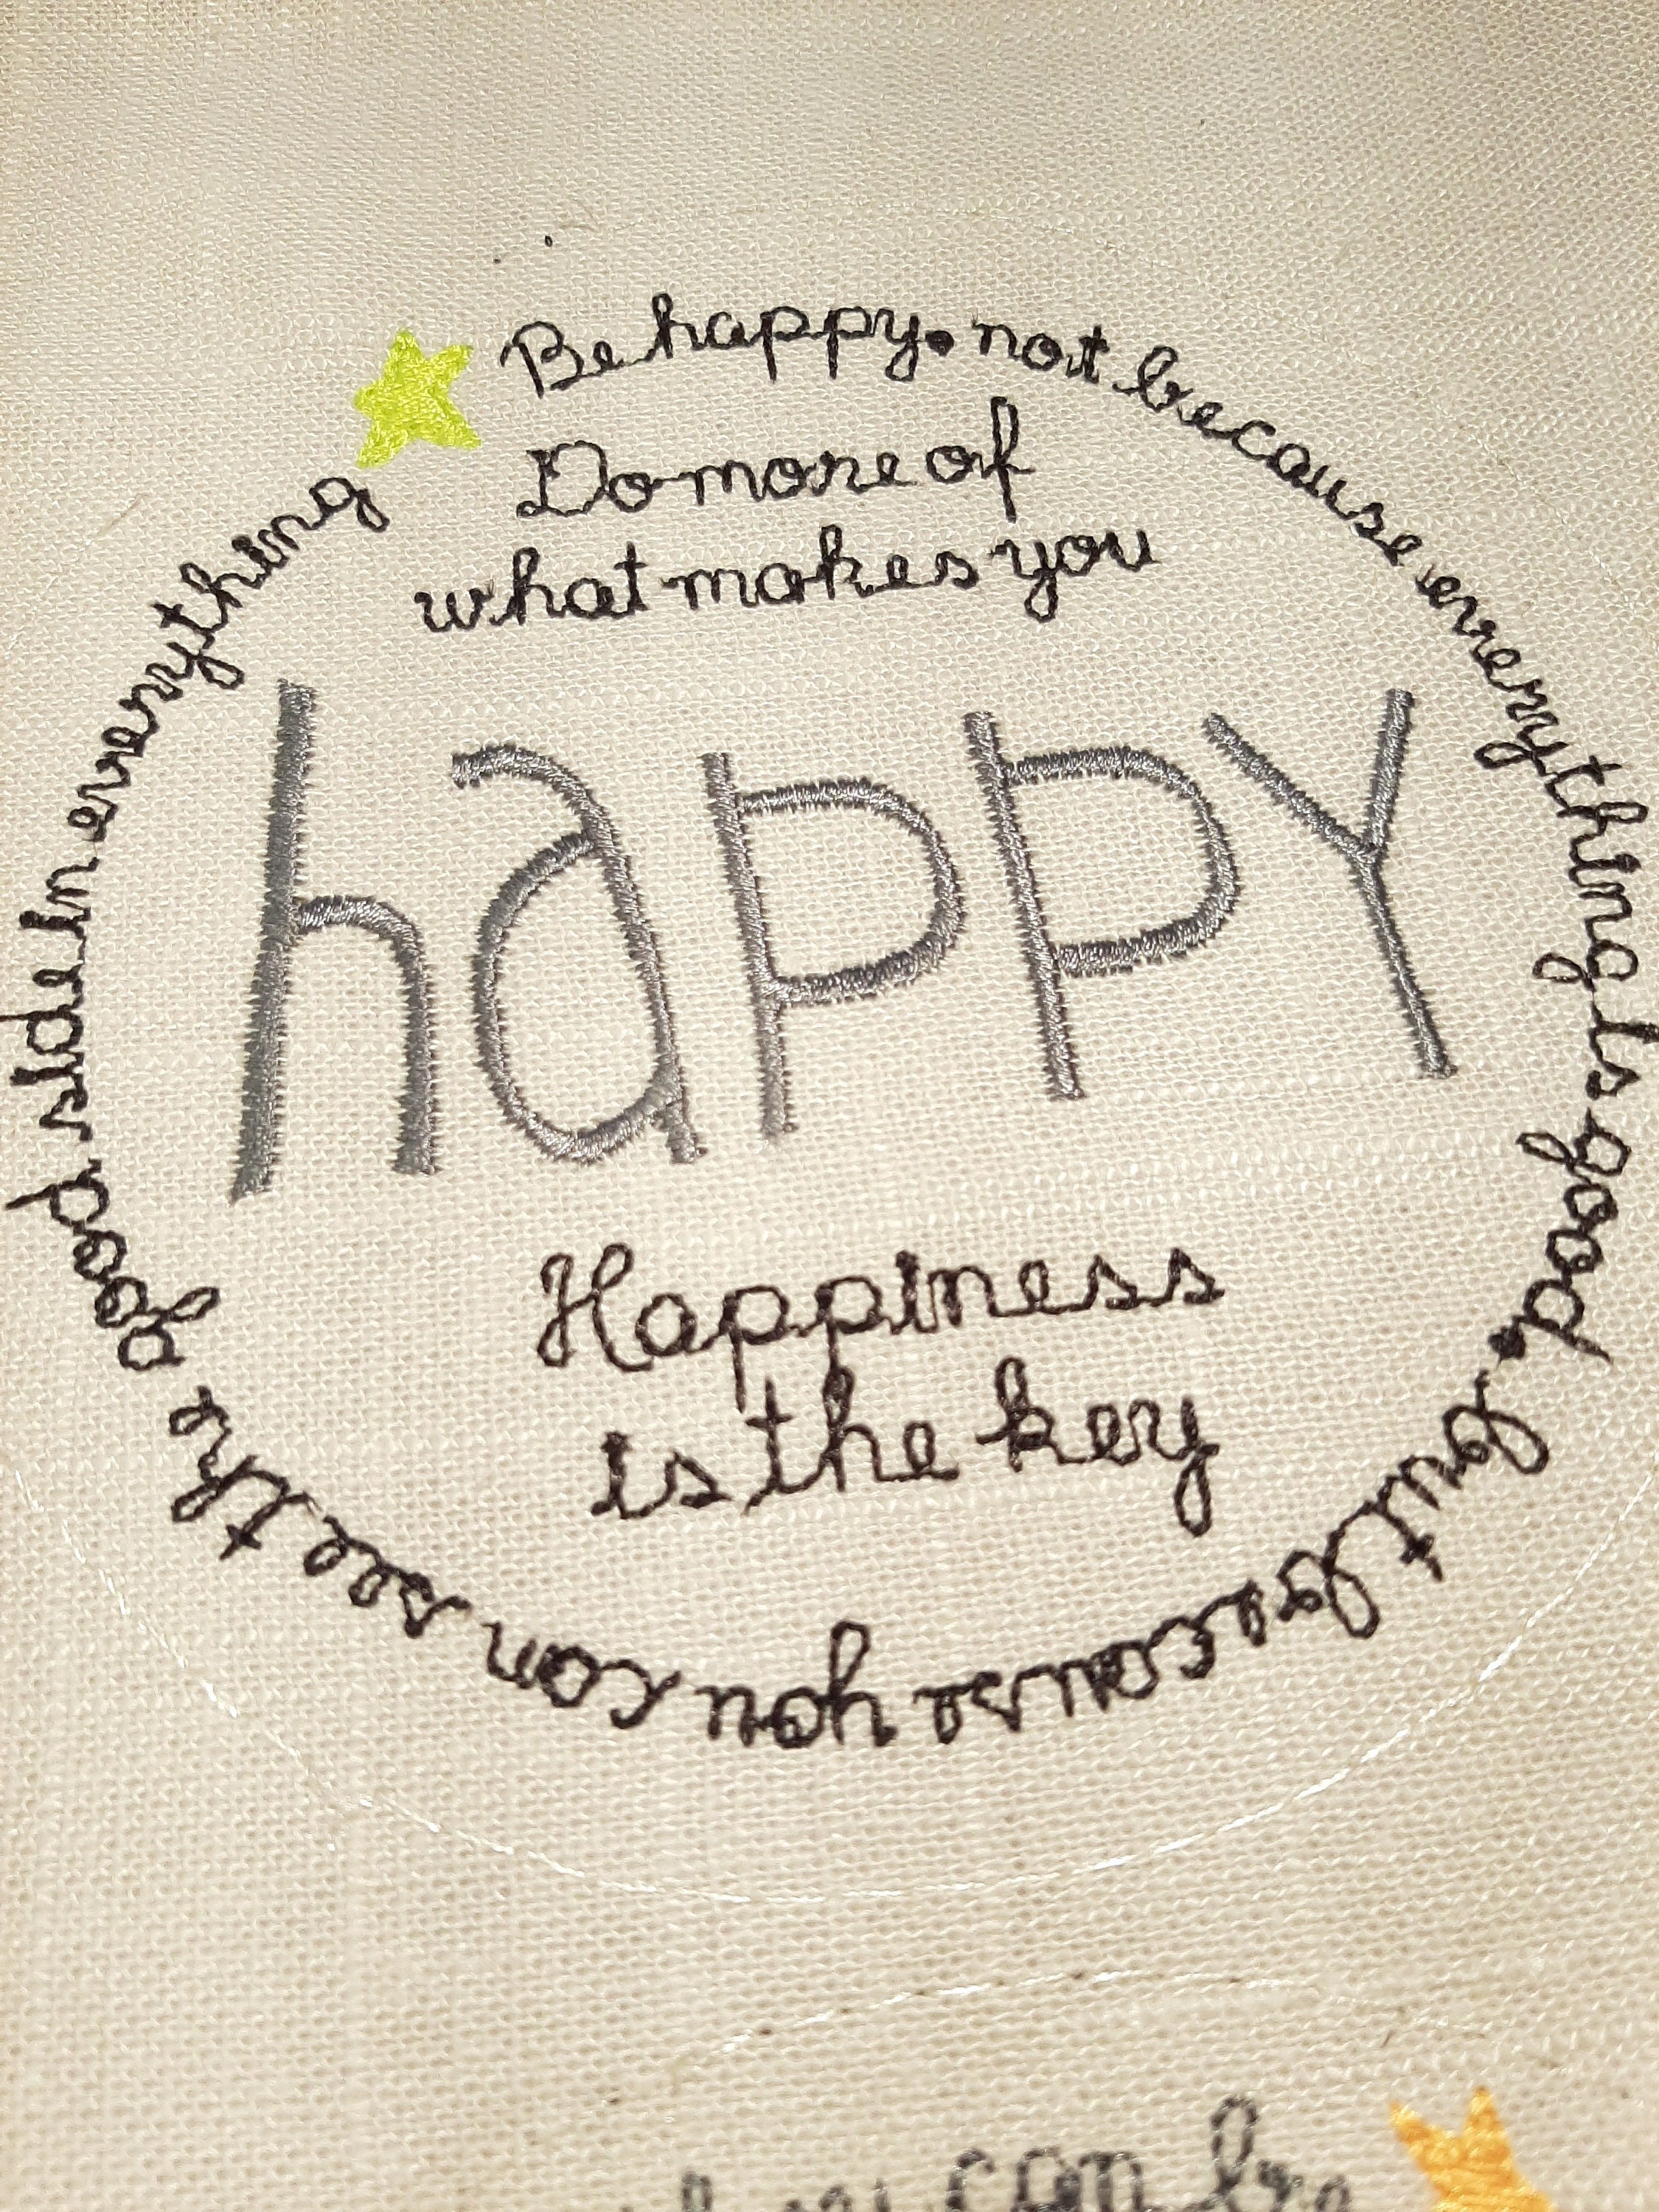 Be happy. not because everything is good. but because you can see the good side in everything
Do more of
what makes you
happy
Happiness
is the key
can be